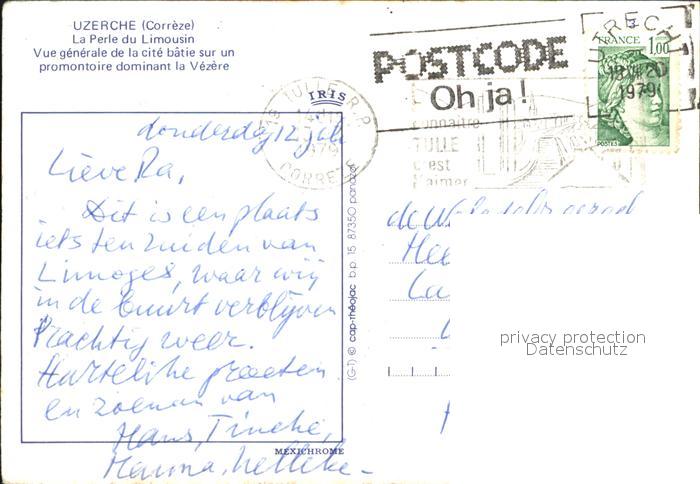 UZERCHE (Corrèze)
La Perle du Limousin
Vue générale de la cité bâtie sur un
promontoire dominant la Vézère
IRIS
donderdag 12 juli
Lieve Ra,
Dit is een plaats
iets ten zuiden van
Limoges, waar wij
in de buurt verblijven
Prachtig weer.
Hartelijke groeten
en zoenen van
Hans, Tineke,
Hanna, Nelleke
MEXICHROME
(G-1) © cap-théojac b.p. 15 87350 panazol
TULLE R.P.
1979
CORREZE
connaître
TULLE
c'est
l'aimer
POSTCODE
Oh ja!
UTRECHT
1979
FRANCE 1,00
POSTES
privacy protection
Datenschutz